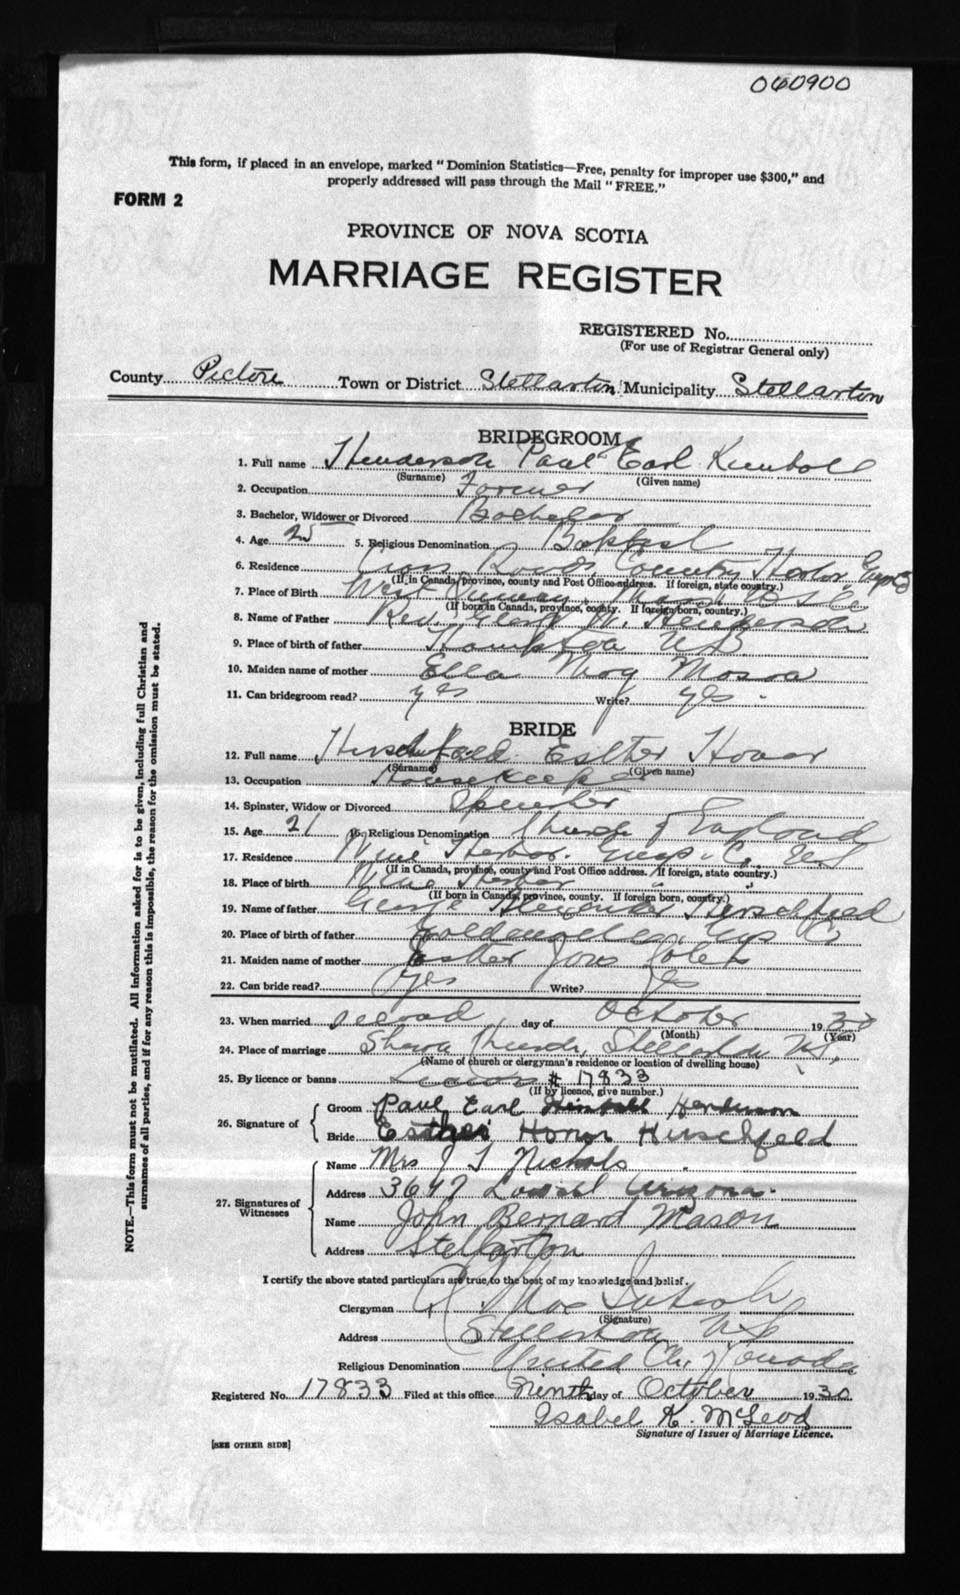 060900
This form, if placed in an envelope, marked "Dominion Statistics—Free, penalty for improper use $300," and
properly addressed will pass through the Mail "FREE."
FORM 2
PROVINCE OF NOVA SCOTIA
MARRIAGE REGISTER
REGISTERED No.
(For use of Registrar General only)
County Pictou Town or District Stellarton Municipality Stellarton
BRIDEGROOM
1. Full name Henderson Paul Earl Kimball
(Surname) (Given name)
2. Occupation Farmer
3. Bachelor, Widower or Divorced Bachelor
4. Age 25 5. Religious Denomination Baptist
6. Residence Cross Roads, Country Harbor, Guys
(If in Canada, province, county and Post Office address. If foreign, state country.)
7. Place of Birth West Mass.
(If born in Canada, province, county. If foreign born, country.)
8. Name of Father Rev. Glenn W. Henderson
9. Place of birth of father U S
10. Maiden name of mother Ella May
11. Can bridegroom read? yes Write? yes
BRIDE
12. Full name Hirschfeld Esther Honor
(Surname) (Given name)
13. Occupation Housekeeper
14. Spinster, Widow or Divorced Spinster
15. Age 21 16. Religious Denomination Church of England
17. Residence Wine Harbor. Guys. Co.
(If in Canada, province, county and Post Office address. If foreign, state country.)
18. Place of birth Wine Harbor " "
(If born in Canada, province, county. If foreign born, country.)
19. Name of father George Alexander Hirschfeld
20. Place of birth of father Goldenville Guys Co
21. Maiden name of mother Esther
22. Can bride read? Yes Write? Yes
23. When married second day of October 1930
(Month) (Year)
24. Place of marriage Sharon Church, Stellarton N.S.
(Name of church or clergyman's residence or location of dwelling house)
25. By licence or banns Licence # 17833
(If by licence, give number.)
26. Signature of
Groom Paul Earl Kimball Henderson
Bride Esther Honor Hirschfeld
27. Signatures of Witnesses
Name Mrs J T Nichols
Address 3647 Arizona.
Name John Bernard Mason
Address Stellarton
I certify the above stated particulars are true, to the best of my knowledge and belief.
Clergyman
(Signature)
Address Stellarton NS
Religious Denomination United Ch. Canada
Registered No. 17833 Filed at this office Ninth day of October 1930
Isabel K. McLeod
Signature of Issuer of Marriage Licence.
[SEE OTHER SIDE]
NOTE.—This form must not be mutilated. All information asked for is to be given, including full Christian and
surnames of all parties, and if for any reason this is impossible, the reason for the omission must be stated.